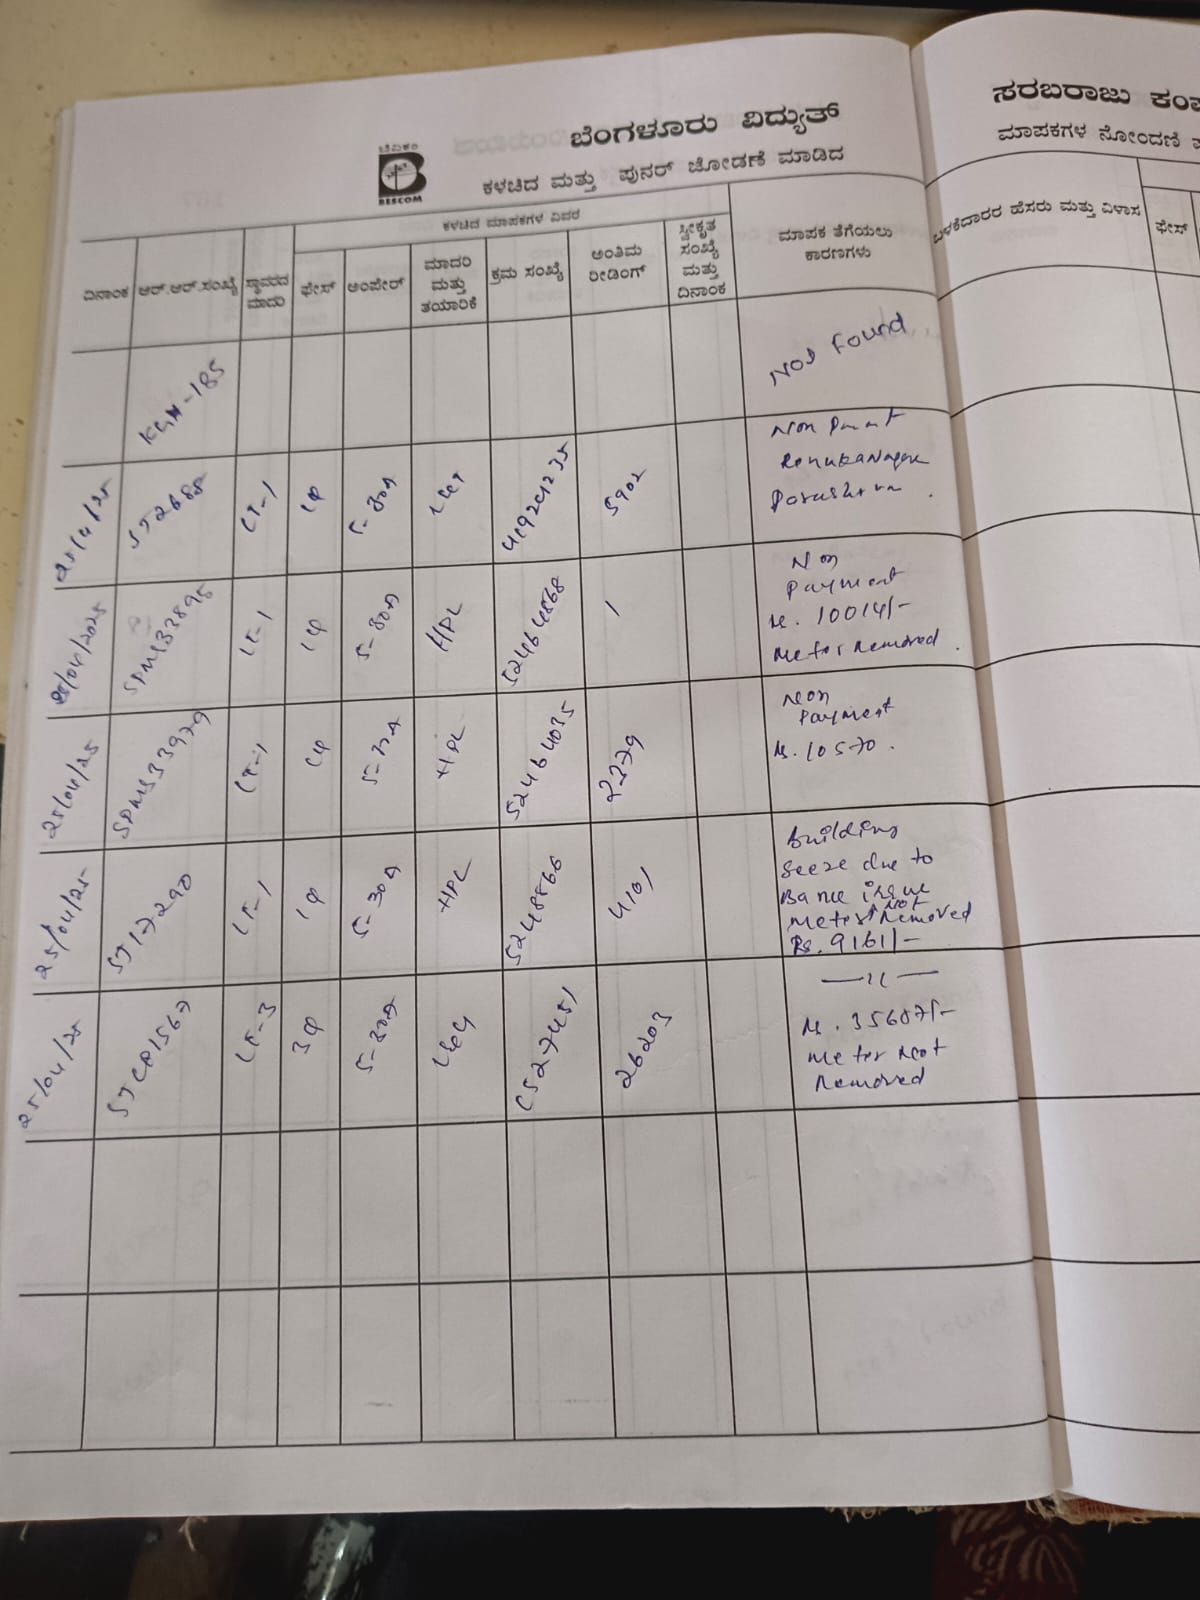 ಬೆವಿಕಂ
BESCOM
ಬೆಂಗಳೂರು ವಿದ್ಯುತ್
ಕಳಚಿದ ಮತ್ತು ಪುನರ್ ಜೋಡಣೆ ಮಾಡಿದ
ಕಳಚಿದ ಮಾಪಕಗಳ ವಿವರ
ದಿನಾಂಕ
ಆರ್.ಆರ್.ಸಂಖ್ಯೆ
ಸ್ಥಾವರದ
ಮಾದರಿ
ಫೇಸ್
ಅಂಪೇರ್
ಮಾದರಿ
ಮತ್ತು
ತಯಾರಿಕೆ
ಕ್ರಮ ಸಂಖ್ಯೆ
ಅಂತಿಮ
ರೀಡಿಂಗ್
ಸ್ವೀಕೃತ
ಸಂಖ್ಯೆ
ಮತ್ತು
ದಿನಾಂಕ
ಮಾಪಕ ತೆಗೆಯಲು
ಕಾರಣಗಳು
Not Found
25/04/25
ST2688
LT-1
1φ
5-30A
5902
Non
RenukaNagar
25/04/2025
SPMS33895
LT-1
1φ
5-30A
HPL
52464868
1
Non
Payment
Rs. 10014/-
Meter Removed.
25/04/25
SPMS33979
LT-1
1φ
HPL
52464035
2379
Non
Payment
Rs. 10570.
25/04/25
ST17290
LT-1
1φ
5-30A
HPL
5248566
4101
Building
Seeze due to
issue
Meter Not Removed
Rs. 9161/-
25/04/25
LT-3
3φ
5-30A
C527451
26203
—〃—
Rs. 35687/-
Meter Not
Removed
ಸರಬರಾಜು
ಮಾಪಕಗಳ ನೋಂದಣಿ
ಬಳಕೆದಾರರ ಹೆಸರು ಮತ್ತು ವಿಳಾಸ
ಫೇಸ್